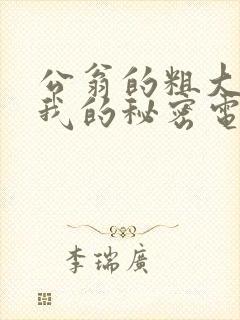 公翁的粗大
我的秘密電
李瑞廣